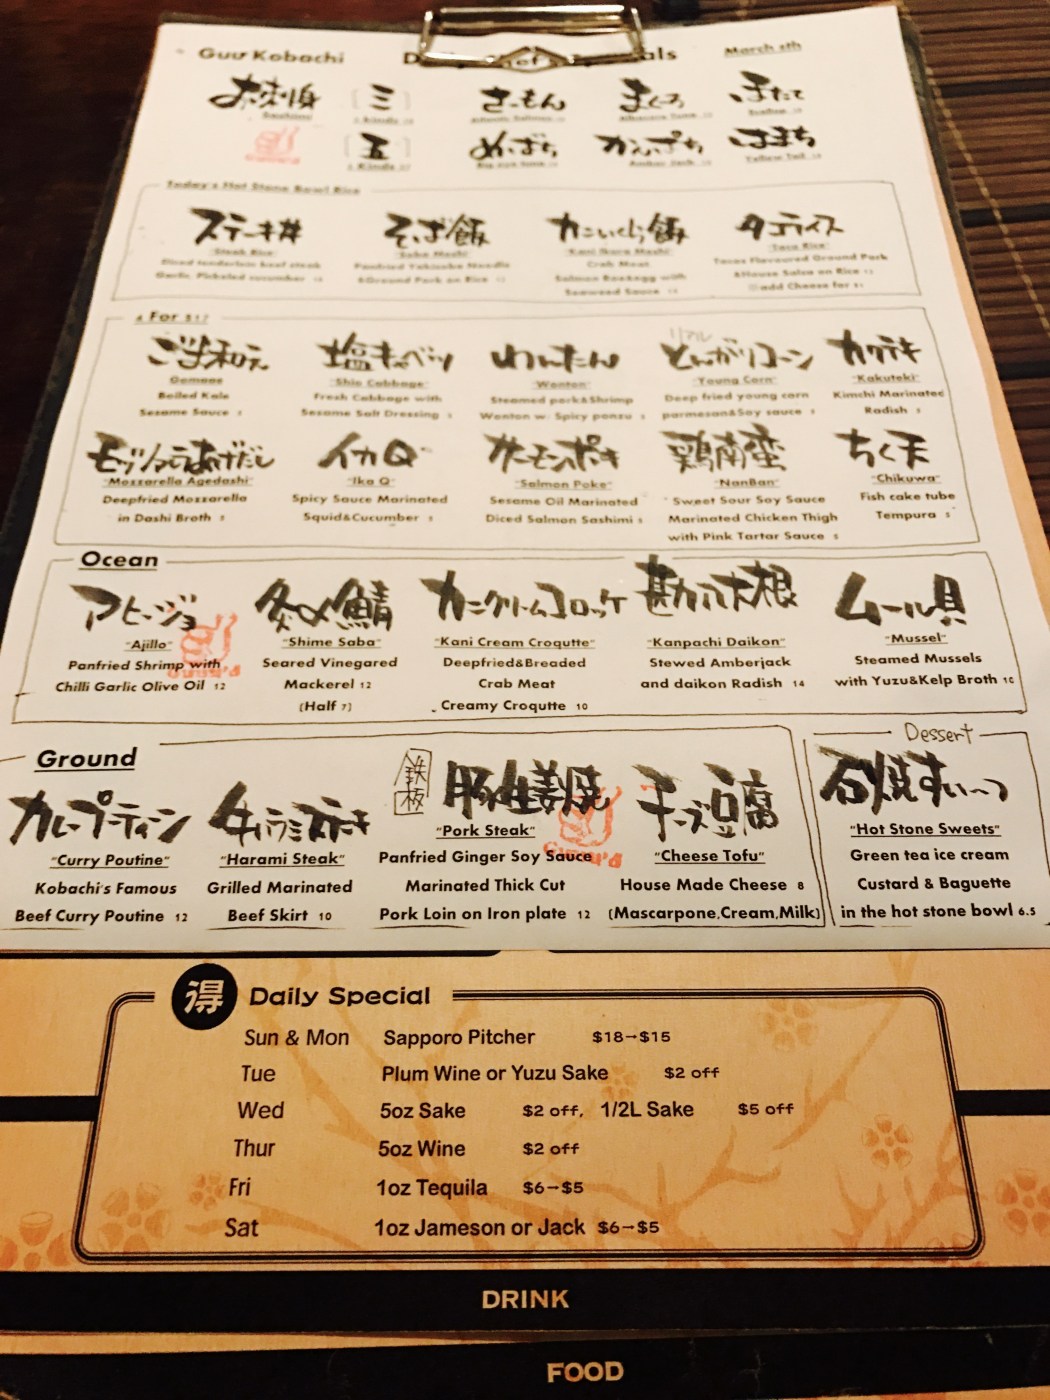 Guu Kobachi
March 8th
お刺身
Sashimi
三
五
さーもん
まぐろ
ほたて
めばち
かんぱち
はまち
Today's Hot Stone Bowl Rice
ステーキ丼
"Steak Rice"
Diced tenderloin beef steak
Garlic, Pickeled cucumber
そば飯
"Soba Meshi"
Panfried Yakisoba Noodle
&Ground Pork on Rice
カニいくら飯
"Kani Ikura Meshi"
Crab Meat
Salmon Roe&egg with
Seaweed Sauce
タコライス
"Taco Rice"
Tacos Flavoured Ground Pork
&House Salsa on Rice
add Cheese for $1
4 For $17
ごま和え
Gomaae
Boiled Kale
Sesame Sauce 5
塩キャベツ
"Shio Cabbage"
Fresh Cabbage with
Sesame Salt Dressing 5
わんたん
"Wonton"
Steamed pork&Shrimp
Wonton w. Spicy ponzu 5
リアル
とんがりコーン
"Young Corn"
Deep fried young corn
parmesan&Soy sauce 5
カクテキ
"Kakuteki"
Kimchi Marinated
Radish 5
モッツァレラあげだし
"Mozzarella Agedashi"
Deepfried Mozzarella
in Dashi Broth 5
イカQ
"Ika Q"
Spicy Sauce Marinated
Squid&Cucumber 5
サーモンポキ
"Salmon Poke"
Sesame Oil Marinated
Diced Salmon Sashimi 5
鶏南蛮
"NanBan"
Sweet Sour Soy Sauce
Marinated Chicken Thigh
with Pink Tartar Sauce 5
ちく天
"Chikuwa"
Fish cake tube
Tempura 5
Ocean
アヒージョ
"Ajillo"
Panfried Shrimp with
Chilli Garlic Olive Oil 12
炙〆鯖
"Shime Saba"
Seared Vinegared
Mackerel 12
(Half 7)
カニクリームコロッケ
"Kani Cream Croqutte"
Deepfried&Breaded
Crab Meat
Creamy Croqutte 10
勘八大根
"Kanpachi Daikon"
Stewed Amberjack
and daikon Radish 14
ムール貝
"Mussel"
Steamed Mussels
with Yuzu&Kelp Broth 10
Ground
カレープーティーン
"Curry Poutine"
Kobachi's Famous
Beef Curry Poutine 12
牛ハラミステーキ
"Harami Steak"
Grilled Marinated
Beef Skirt 10
鉄板
豚生姜焼
"Pork Steak"
Panfried Ginger Soy Sauce
Marinated Thick Cut
Pork Loin on Iron plate 12
チーズ豆腐
"Cheese Tofu"
House Made Cheese 8
(Mascarpone,Cream,Milk)
Dessert
石焼すいーつ
"Hot Stone Sweets"
Green tea ice cream
Custard & Baguette
in the hot stone bowl 6.5
得 Daily Special
Sun & Mon Sapporo Pitcher $18→$15
Tue Plum Wine or Yuzu Sake $2 off
Wed 5oz Sake $2 off, 1/2L Sake $5 off
Thur 5oz Wine $2 off
Fri 1oz Tequila $6→$5
Sat 1oz Jameson or Jack $6→$5
DRINK
FOOD